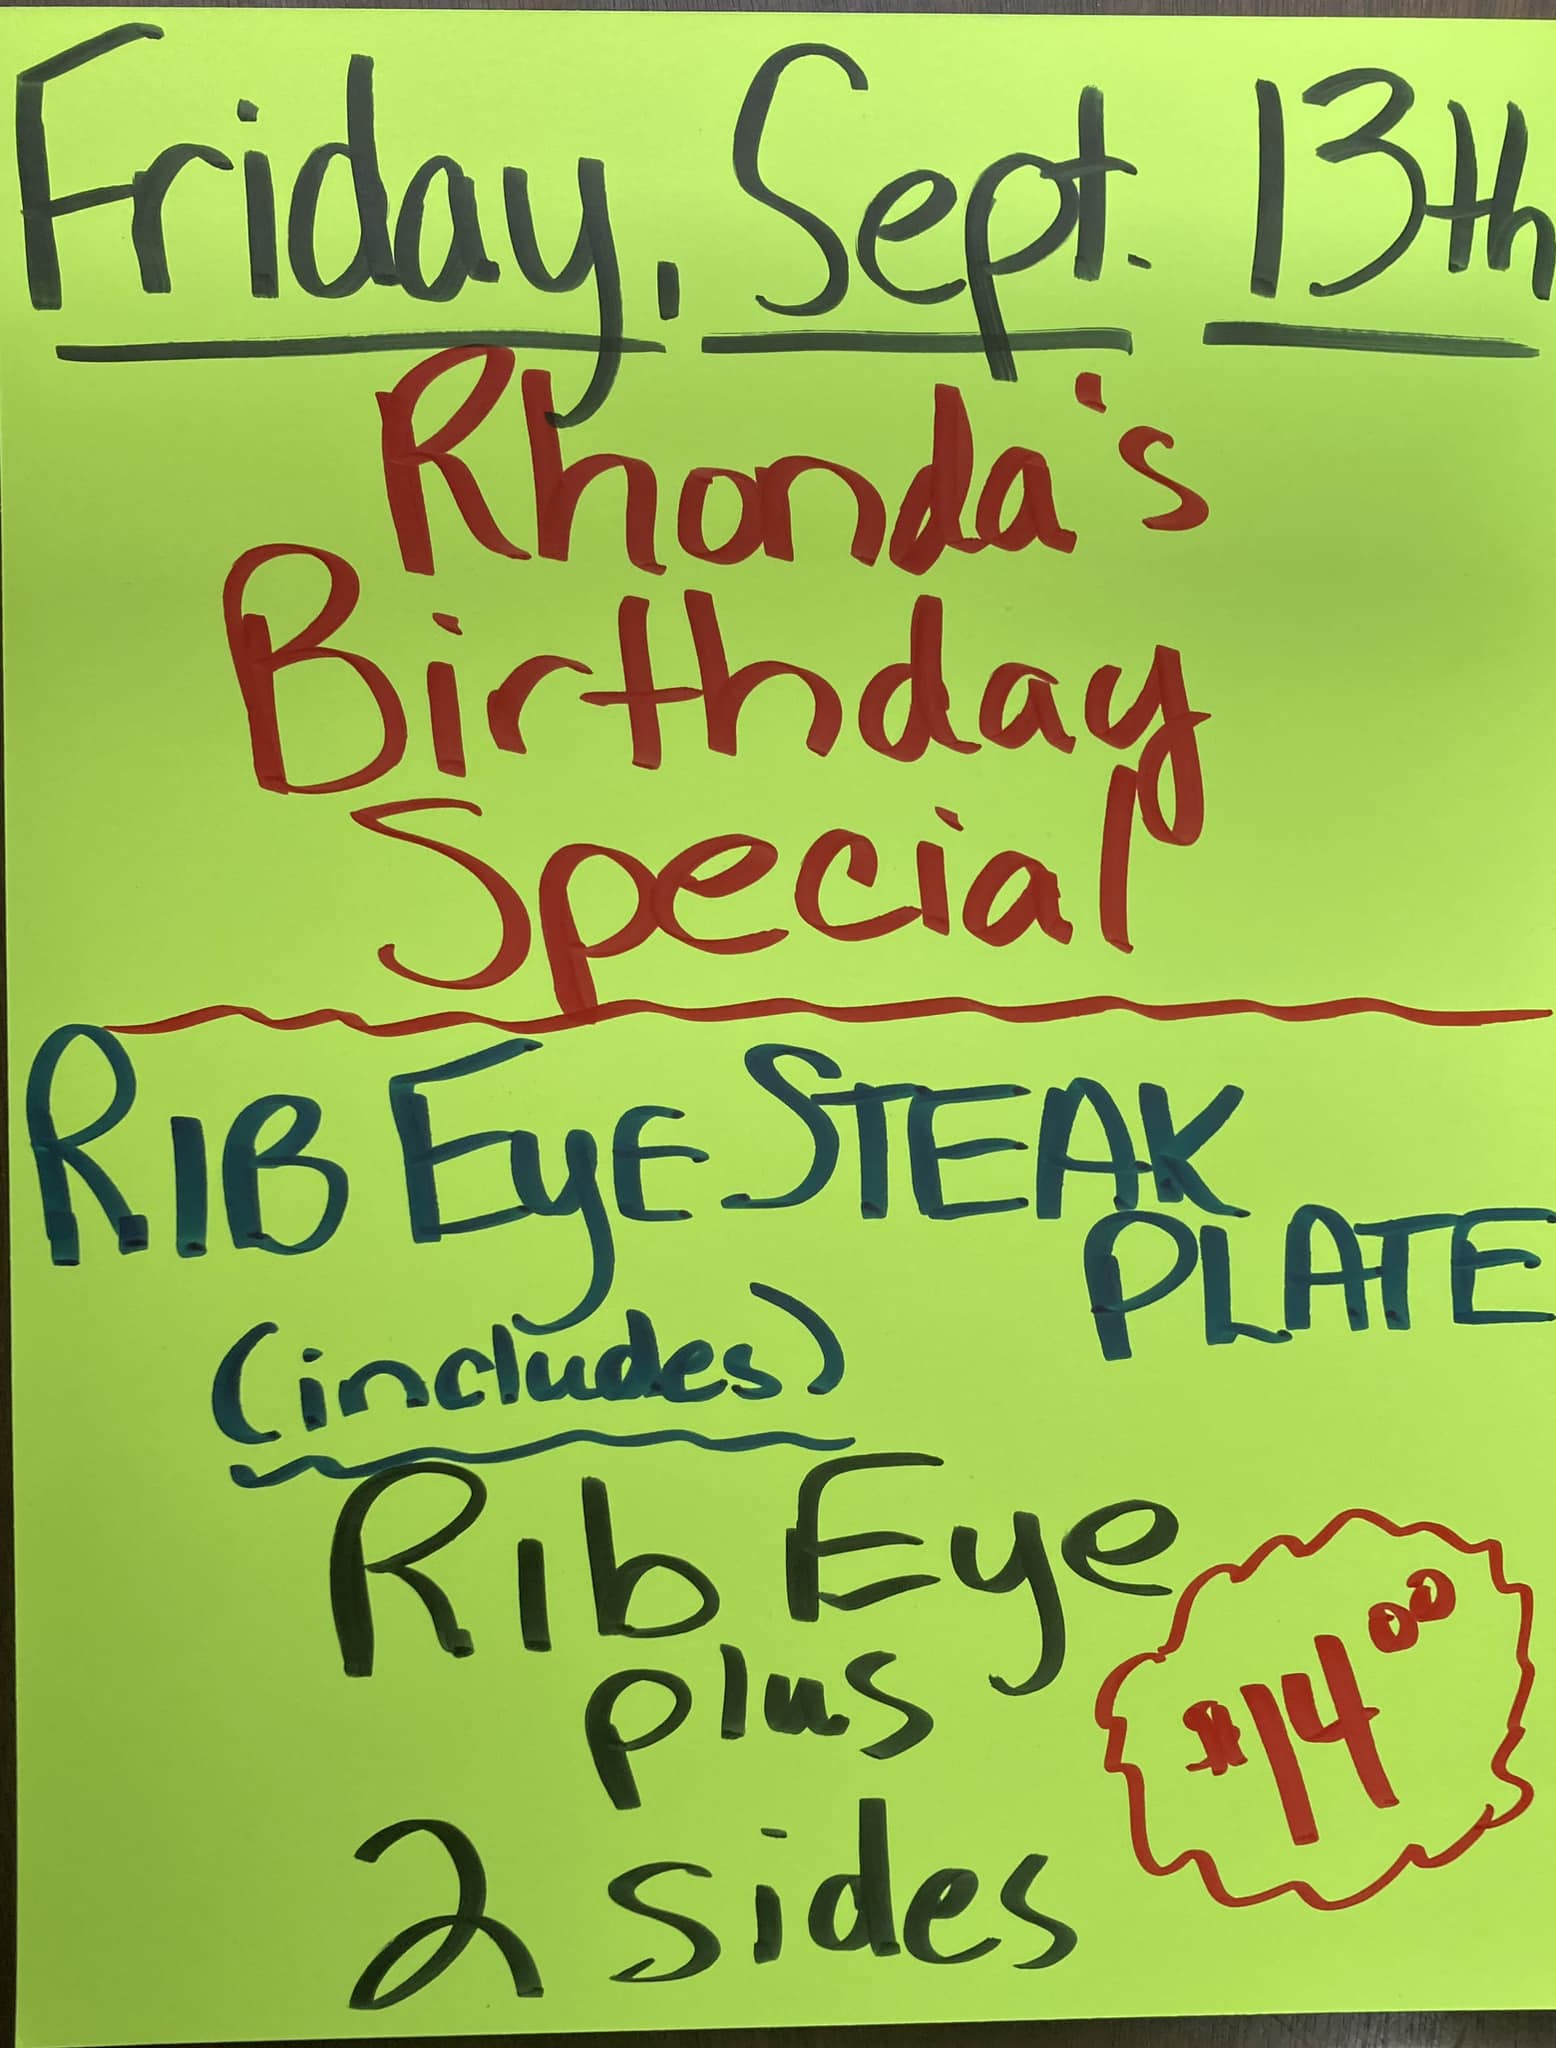 Friday, Sept. 13th
Rhonda's
Birthday
Special
RIB EyE STEAK
PLATE
(includes)
Rib Eye
plus
2 sides
$14.00